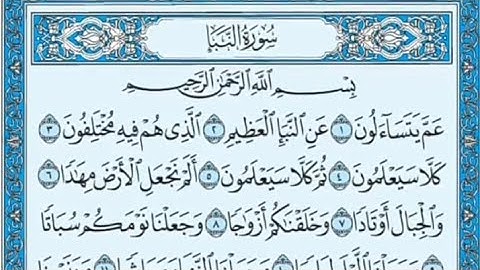 سُورَةُ النَّبَإِ
بِسْمِ ٱللَّهِ ٱلرَّحْمَٰنِ ٱلرَّحِيمِ
عَمَّ يَتَسَآءَلُونَ ١ عَنِ ٱلنَّبَإِ ٱلْعَظِيمِ ٢ ٱلَّذِى هُمْ فِيهِ مُخْتَلِفُونَ ٣
كَلَّا سَيَعْلَمُونَ ٤ ثُمَّ كَلَّا سَيَعْلَمُونَ ٥ أَلَمْ نَجْعَلِ ٱلْأَرْضَ مِهَٰدًا ٦
وَٱلْجِبَالَ أَوْتَادًا ٧ وَخَلَقْنَٰكُمْ أَزْوَٰجًا ٨ وَجَعَلْنَا نَوْمَكُمْ سُبَاتًا